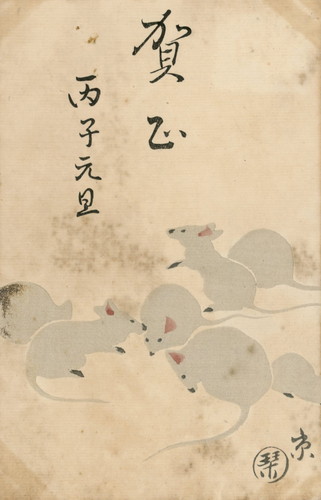 賀正
丙子元旦